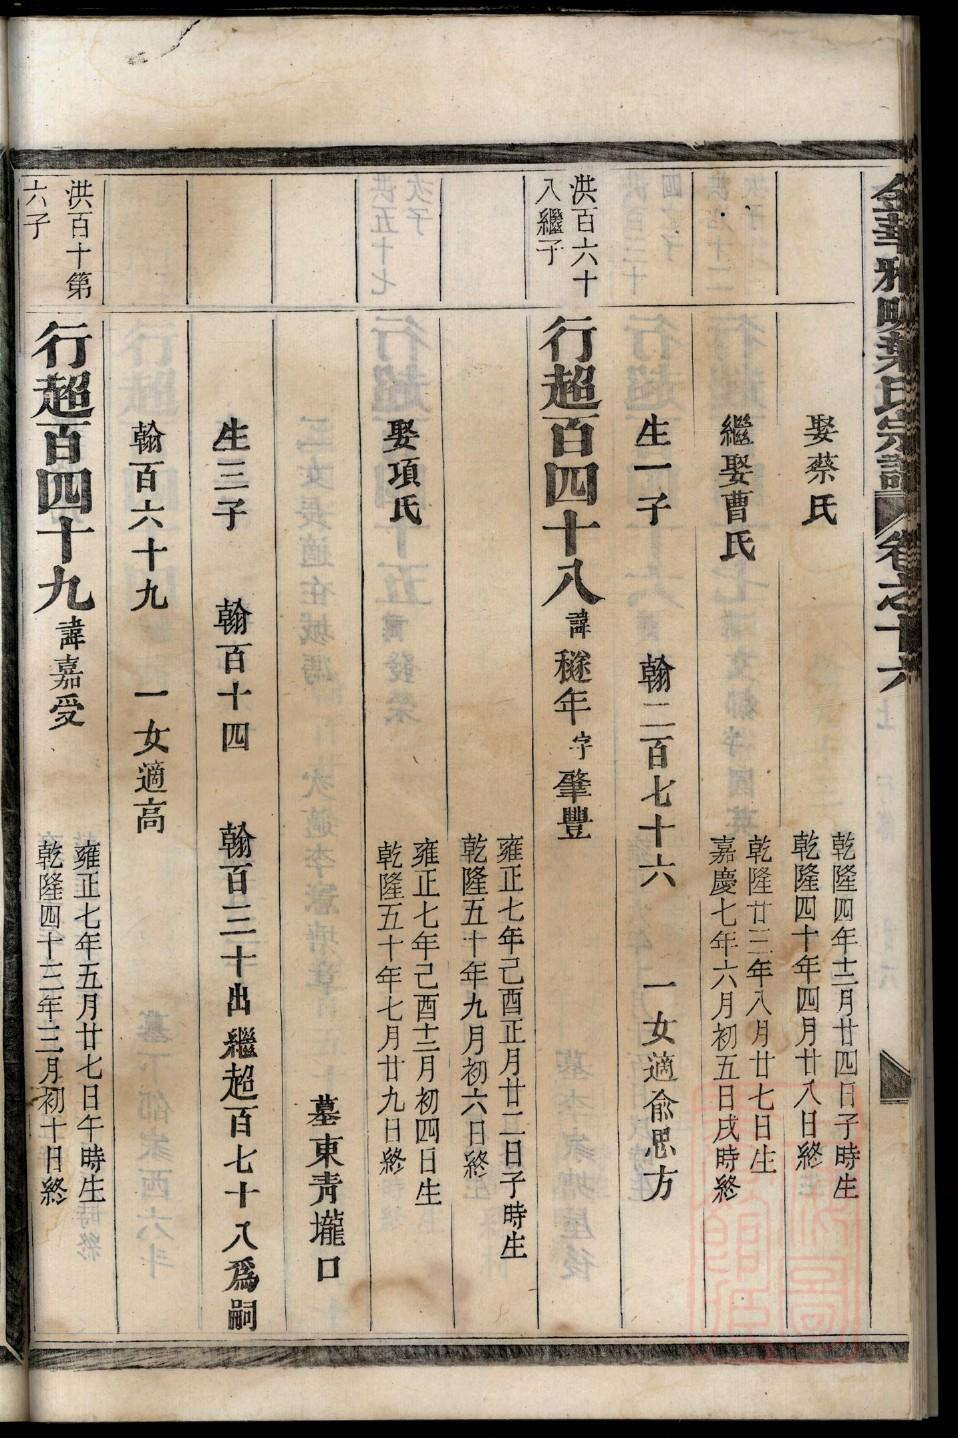 金華雅畈葉氏宗譜 卷之十六
娶蔡氏
乾隆四年十二月廿四日子時生
乾隆四十年四月廿八日終
繼娶曹氏
乾隆廿三年八月廿七日生
嘉慶七年六月初五日戌時終
生一子 翰二百七十六 一女適俞思方
洪百六十
入繼子
行超百四十八 諱穟年 字肇豐
雍正七年己酉正月廿二日子時生
乾隆五十年九月初六日終
娶項氏
雍正七年己酉十二月初四日生
乾隆五十年七月廿九日終
墓東青壠口
生三子 翰百十四 翰百三十出繼超百七十八為嗣
翰百六十九 一女適高
洪百十第
六子
行超百四十九 諱嘉受
雍正七年五月廿七日午時生
乾隆四十三年二月初十日終